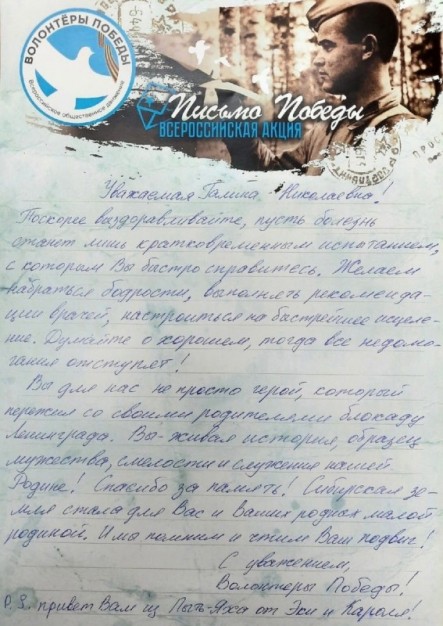 ВОЛОНТЁРЫ ПОБЕДЫ
Всероссийское общественное движение
Письмо Победы
ВСЕРОССИЙСКАЯ АКЦИЯ
Уважаемая Галина Николаевна!
Поскорее выздоравливайте, пусть болезнь
станет лишь кратковременным испытанием,
с которым Вы быстро справитесь. Желаем
набраться бодрости, выполнять рекоменда-
ции врачей, настроиться на быстрейшее исцеле-
ние. Думайте о хорошем, тогда все недомо-
гания отступят!
Вы для нас не просто герой, который
пережил со своими родителями блокаду
Ленинграда. Вы - живая история, образец
мужества, смелости и служения нашей
Родине! Спасибо за память! Сибирская зе-
мля стала для Вас и Ваших родных малой
родиной. И мы помним и чтим Ваш подвиг!
С уважением,
Волонтеры Победы!
P.S. привет Вам из Пыть-Яха от Эки и Кароля!